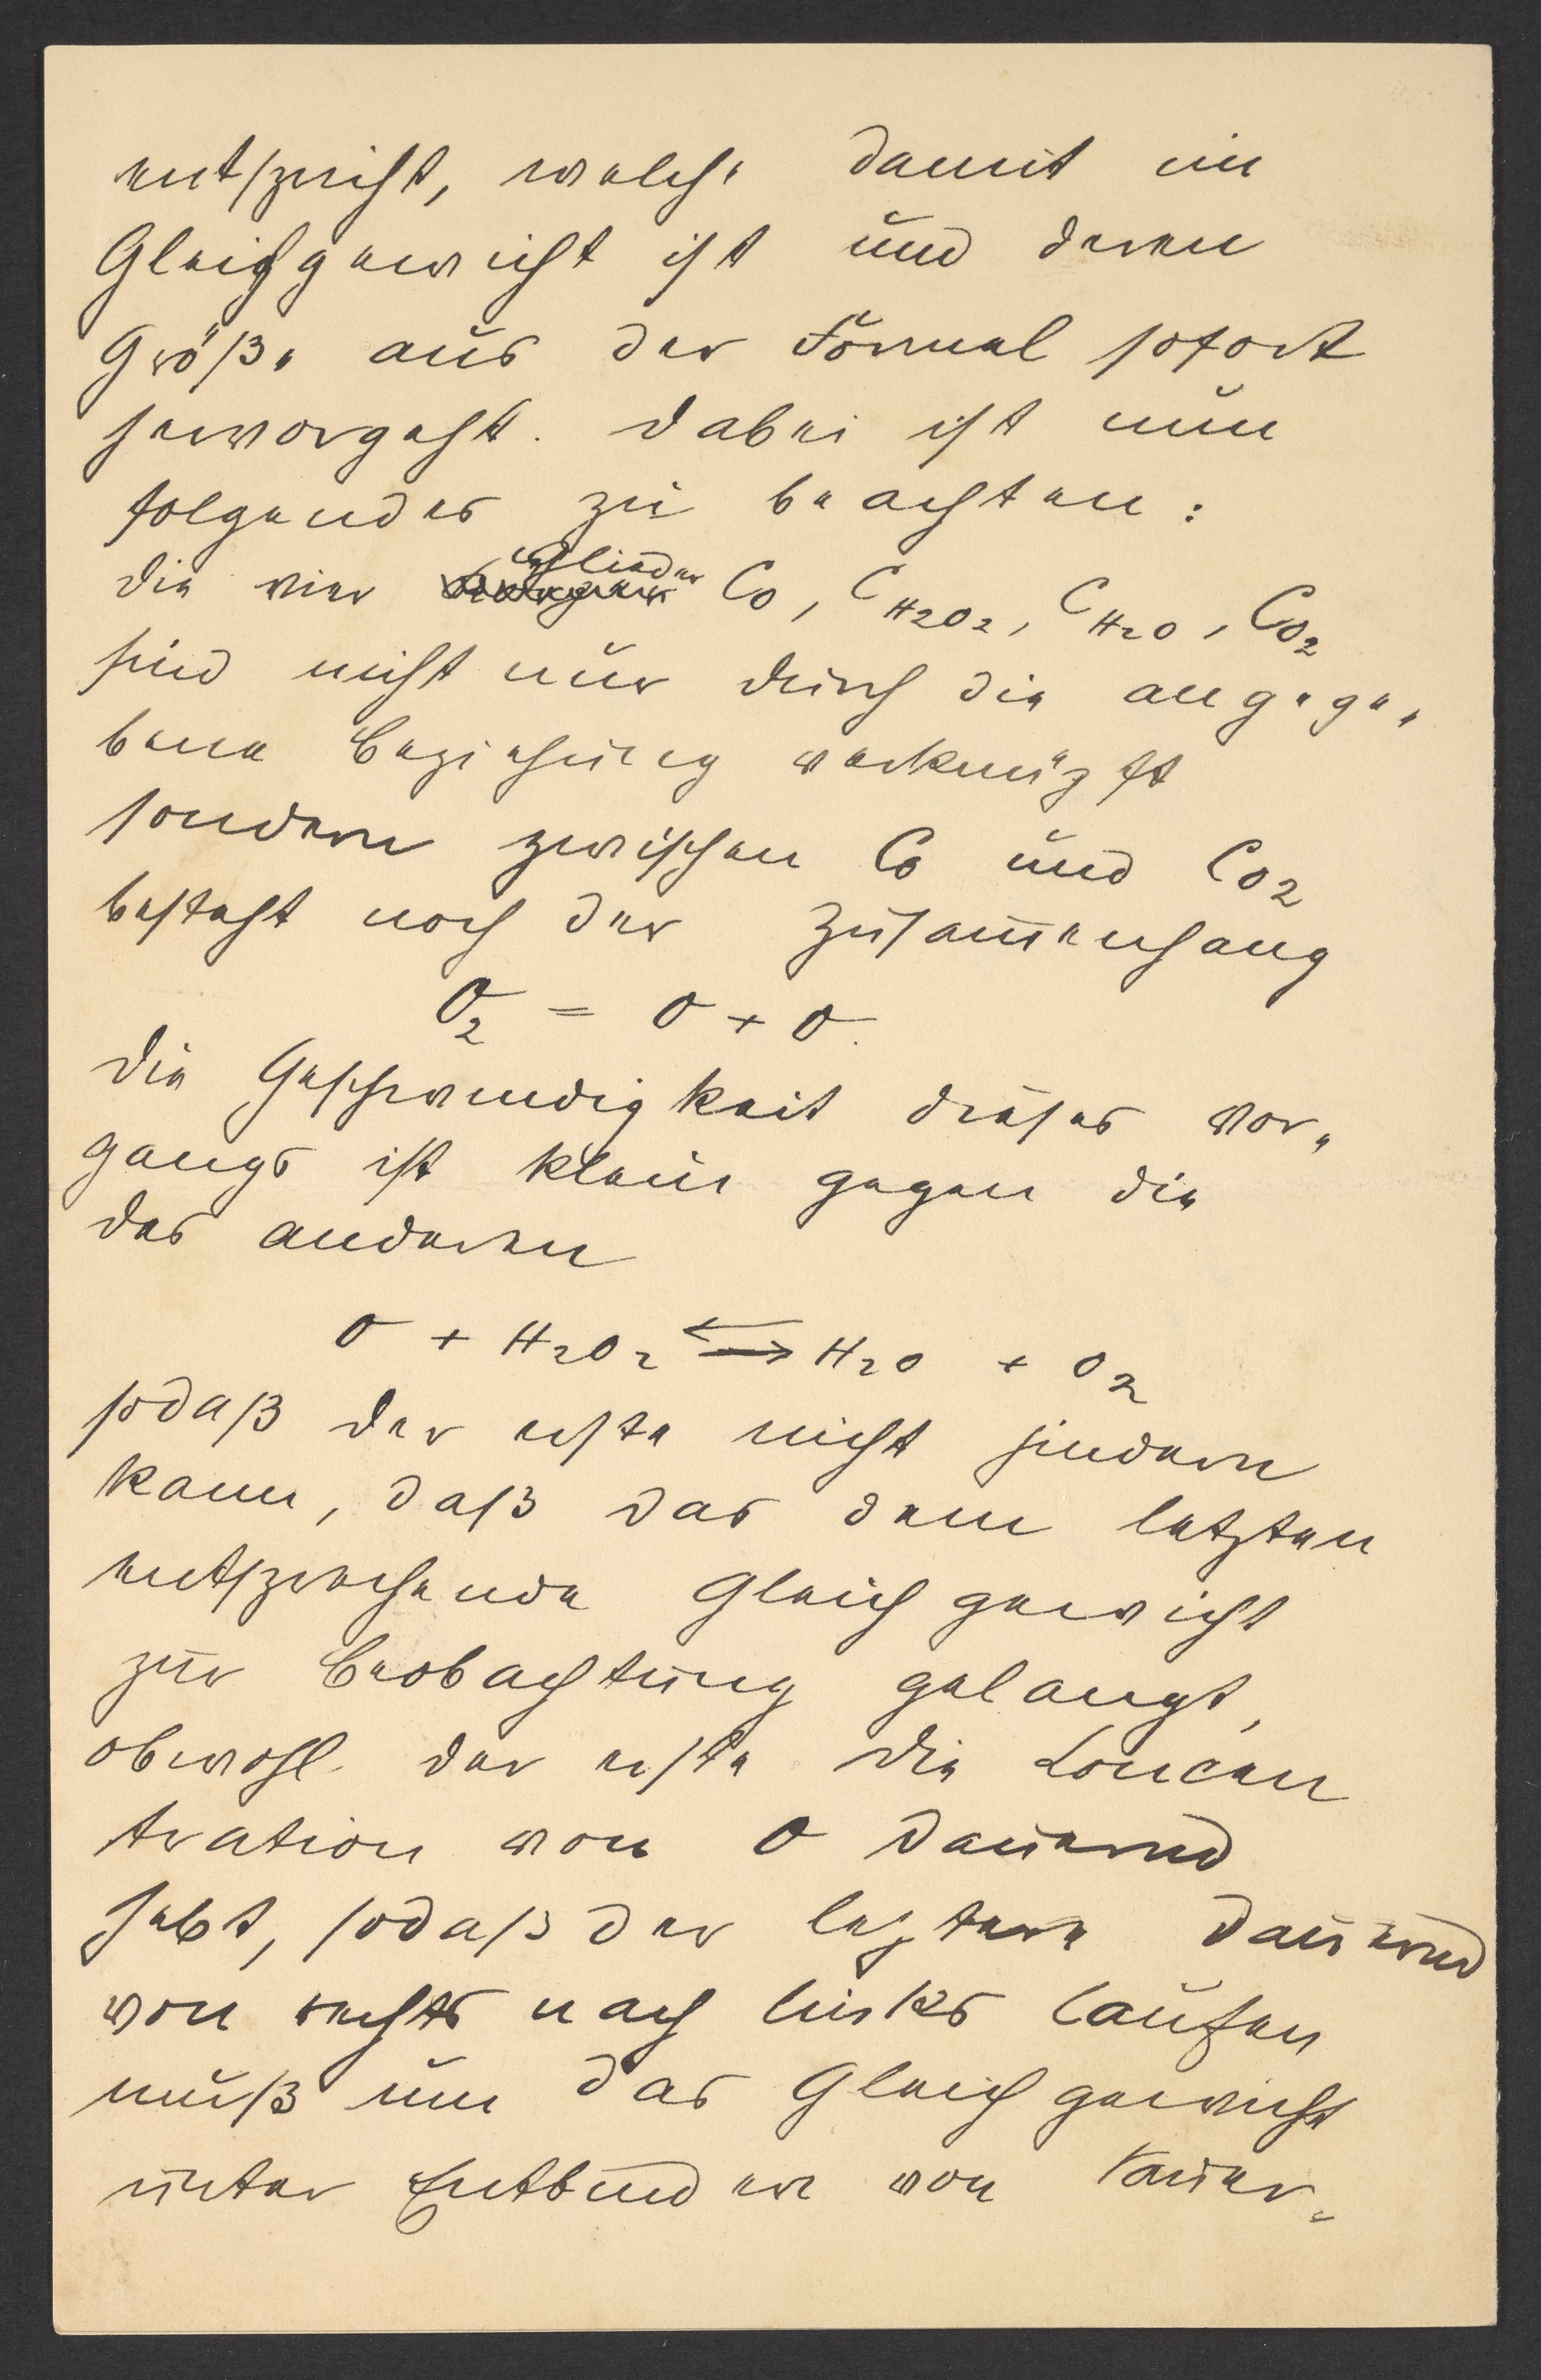 entspricht, welche damit im
Gleichgewicht ist und deren
Größe aus der Formel sofort
hervorgeht. Dabei ist nun
folgendes zu beachten:
Die vier Glieder CO, CH2O2, CH2O, CO2
sind nicht nur durch die angege-
bene Beziehung verknüpft
sondern zwischen CO und CO2
besteht noch der Zusammenhang
O2 = O + O.
Die Geschwindigkeit dieses Vor-
gangs ist klein gegen die
des anderen
O + H2O2 ⇄ H2O + O2
sodaß der erste nicht hindern
kann, daß das dem letzten
entsprechende Gleichgewicht
zur Beobachtung gelangt,
obwohl der erste die Concen
tration von O dauernd
hebt, sodaß der letztere dauernd
von rechts nach links laufen
muß um das Gleichgewicht
unter Entbinden von Sauer-